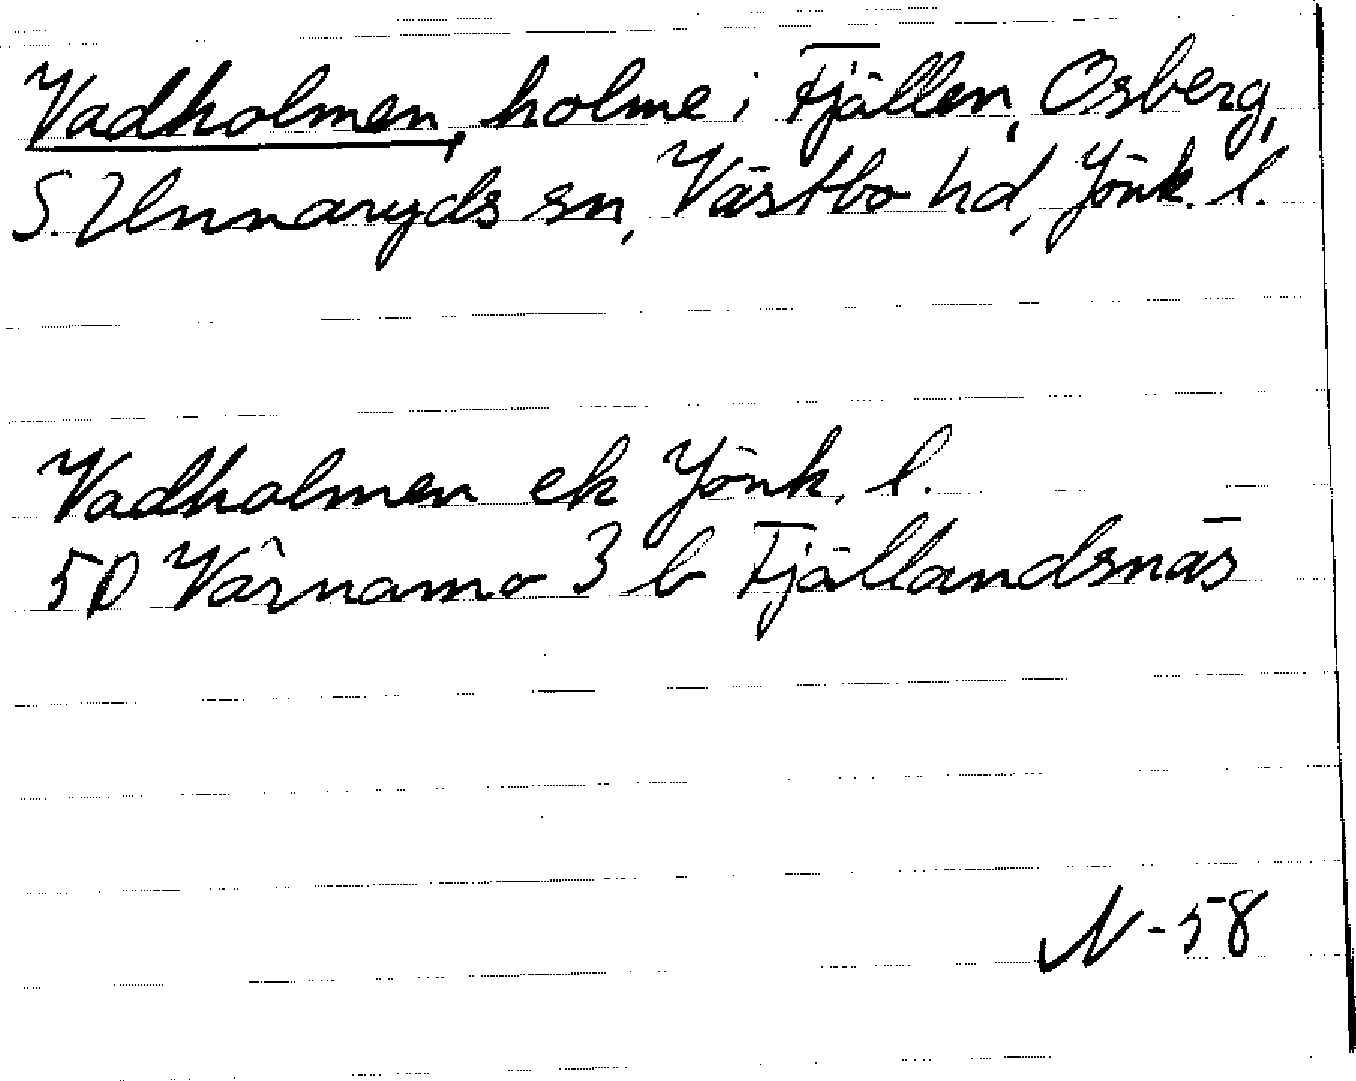 Vadholmen, holme i Fjällen, Osberg,
S. Unnaryds sn, Västbo hd, Jönk. l.
Vadholmen ek Jönk. l.
5D Värnamo 3 b Fjällandsnäs
N-58